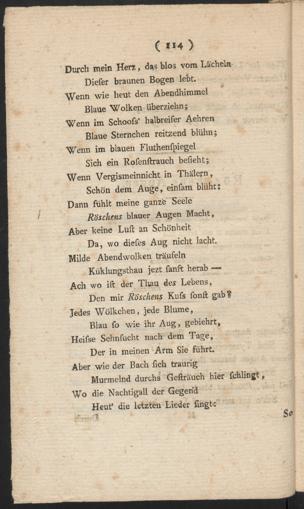 ( 114 )
Durch mein Herz, das blos vom Lächeln
Dieſer braunen Bogen lebt.
Wenn wie heut den Abendhimmel
Blaue Wolken überziehn;
Wenn im Schooſs' halbreifer Aehren
Blaue Sternchen reitzend blühn;
Wenn im blauen Fluthenſpiegel
Sich ein Roſenſtrauch beſieht;
Wenn Vergismeinnicht in Thälern,
Schön dem Auge, einſam blüht:
Dann fühlt meine ganze Seele
Röschens blauer Augen Macht,
Aber keine Luſt an Schönheit
Da, wo dieſes Aug nicht lacht.
Milde Abendwolken träufeln
Kühlungsthau jezt ſanft herab —
Ach wo iſt der Thau des Lebens,
Den mir Röschens Kuſs ſonſt gab?
Jedes Wölkchen, jede Blume,
Blau ſo wie ihr Aug, gebiehrt,
Heiſse Sehnſucht nach dem Tage,
Der in meinen Arm Sie führt.
Aber wie der Bach ſich traurig
Murmelnd durchs Geſträuch hier ſchlingt,
Wo die Nachtigall der Gegend
Heut' die letzten Lieder ſingt:
So